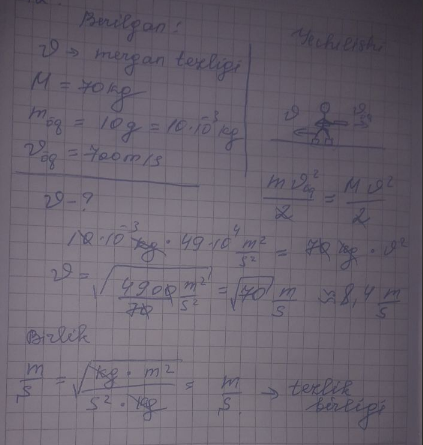 Berilgan:
Yechilishi
ϑ → mergan tezligi
M = 70 kg
m_oq = 10 g = 10·10⁻³ kg
ϑ_oq = 700 m/s
ϑ - ?
ϑ
mϑ_oq²/2 = Mϑ²/2
10·10⁻³ kg · 49·10⁴ m²/s² = 70 kg · ϑ²
ϑ = √(4900/70 m²/s²) = √70 m/s ≈ 8,4 m/s
Birlik
m/s = √(kg · m²/s² · kg) = m/s → tezlik
birligi